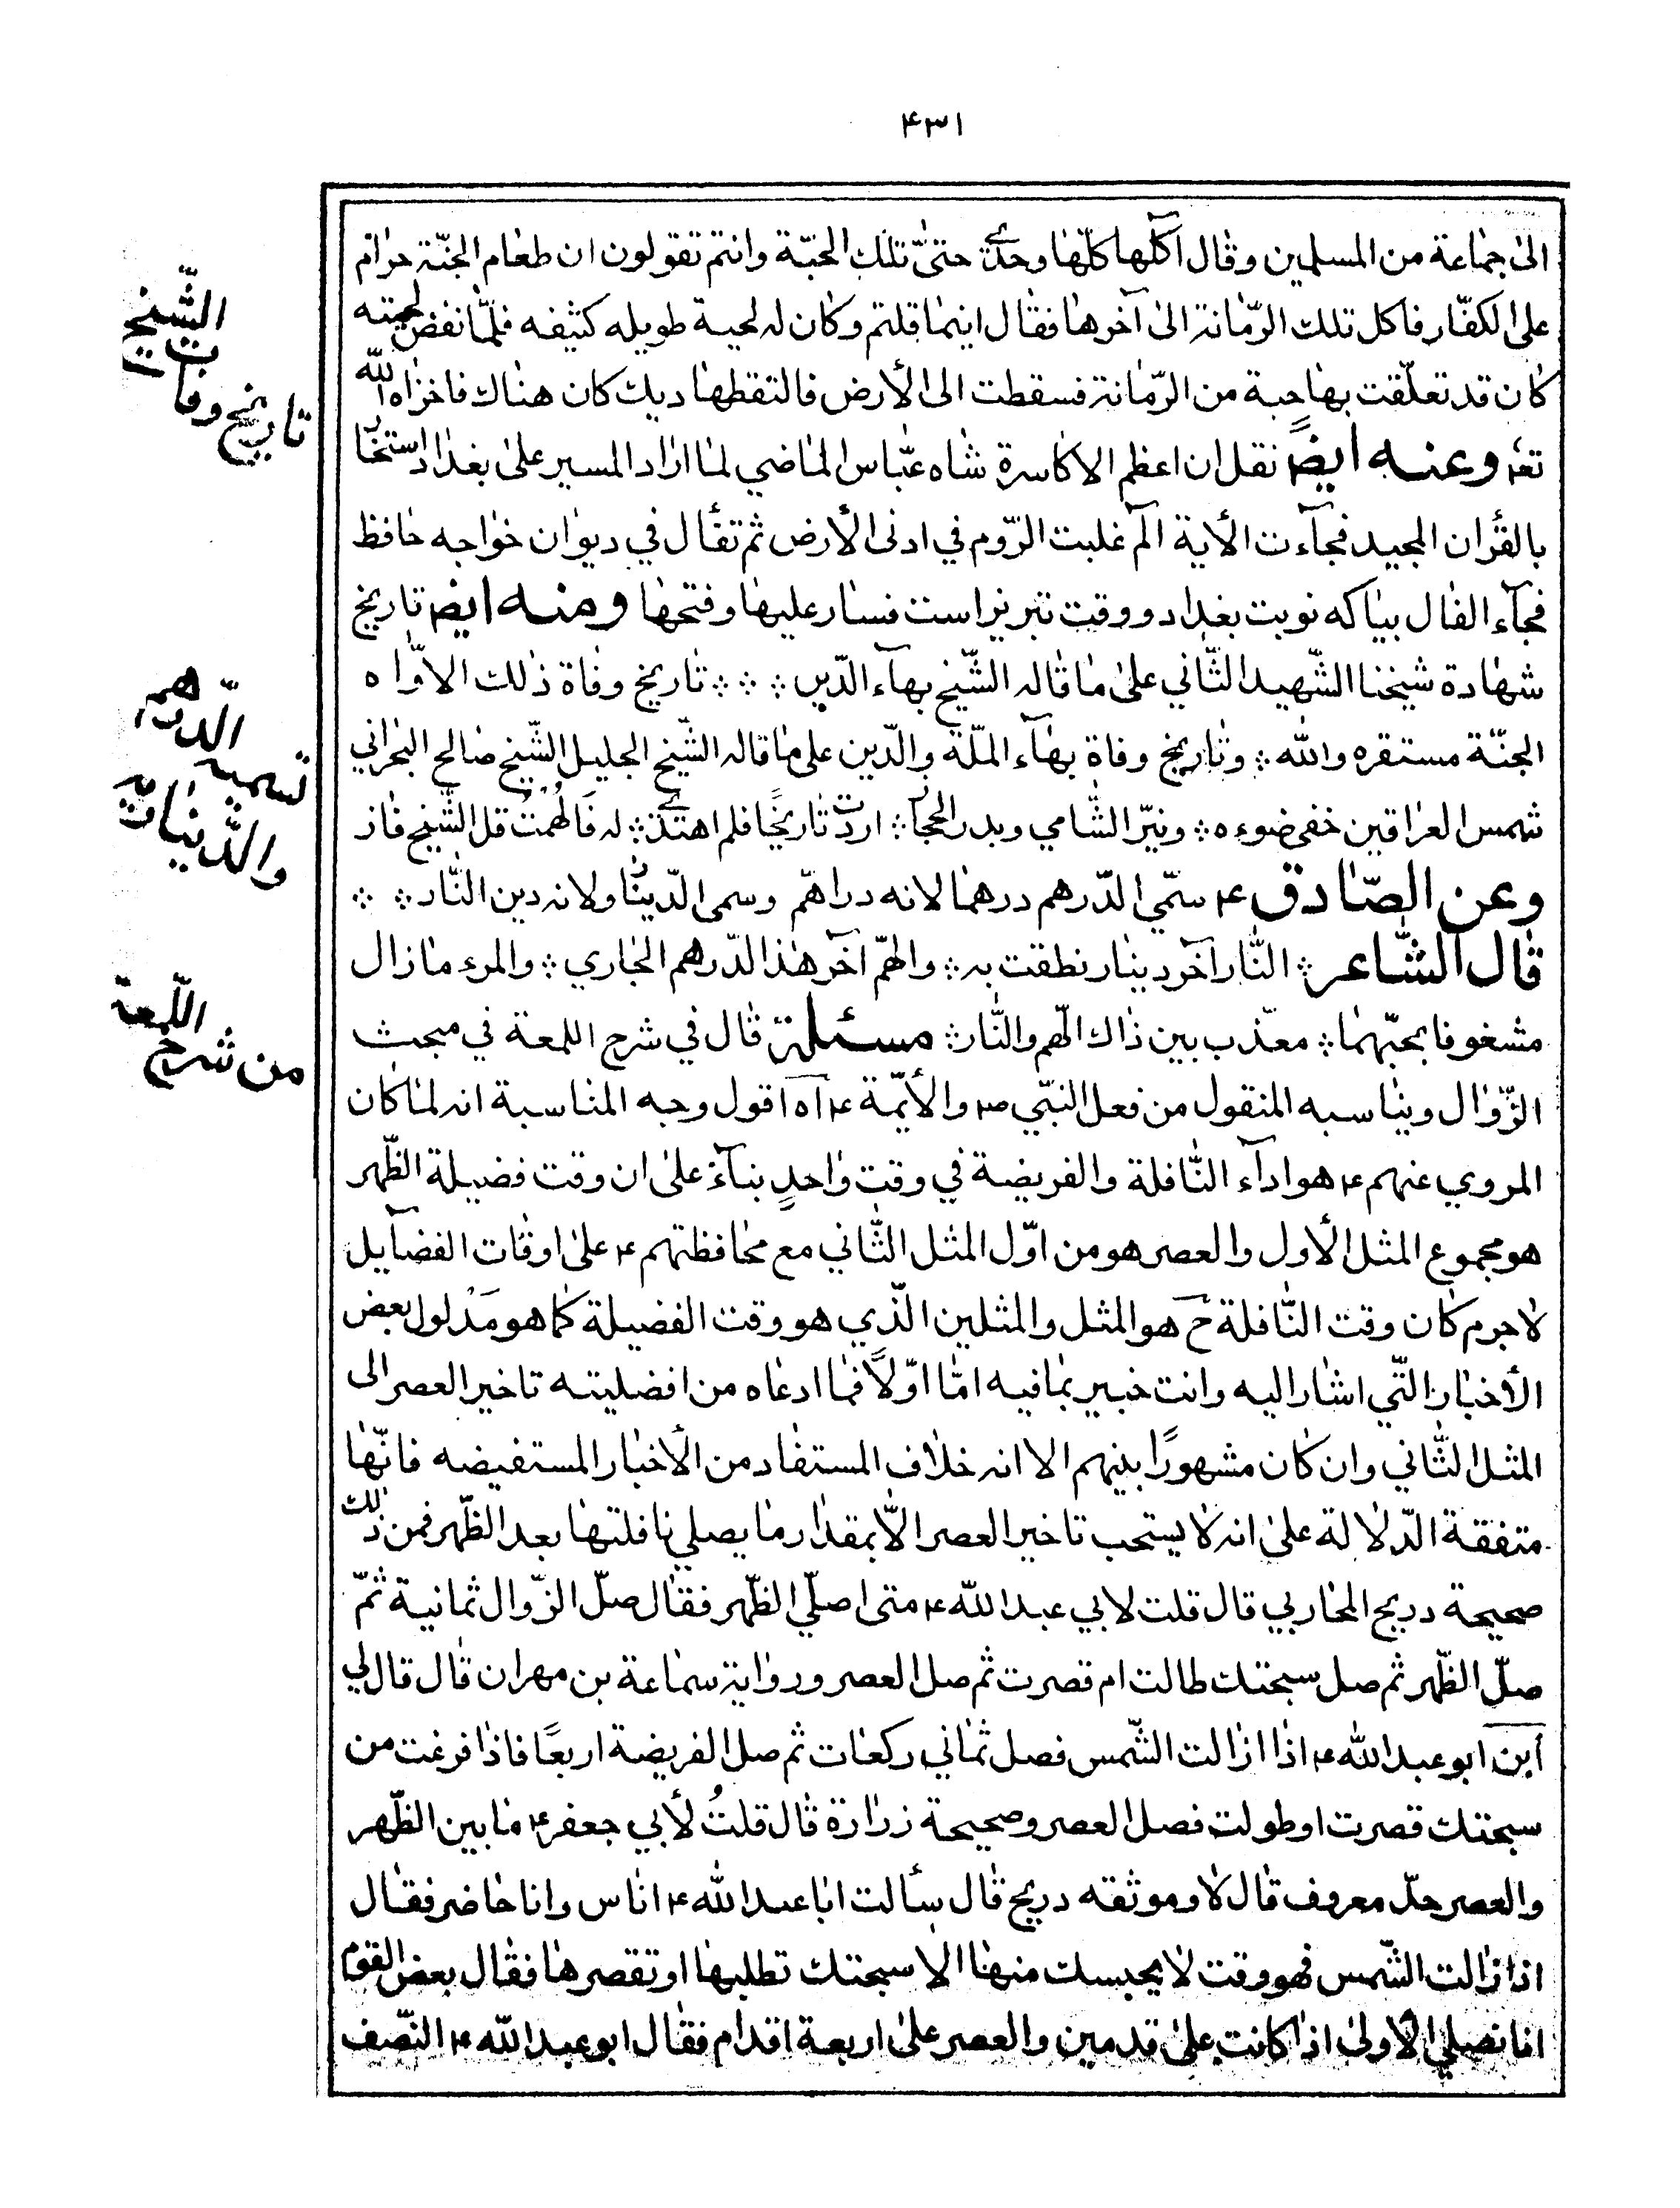 ۴۳۱
الى جماعة من المسلمين وقال آكلها كلّها وحدي حتىّ تلك الحبّة وانتم تقولون ان طعام الجنّة حرام
على الكفّار فاكل تلك الرّمانة الى آخرها فقال اينما قلتم وكان له لحية طويله كثيفه فلمّا نفض لحيته
كان قد تعلّقت بها حبة من الرّمانة فسقطت الى الأرض فالتقطها ديك كان هناك فاخزاه الله
تعا وعنه ايضً نقل ان اعظم الاكاسرة شاه عبّاس الماضي لما اراد المسير على بغداد استخار
بالقرأن المجيد فجاءت الأية الم غلبت الرّوم في ادنى الأرض ثم تفأل في ديوان خواجه حافظ
فجآء الفال بيا كه نوبت بغداد ووقت تبريز است فسار عليها وفتحها ومنه ايض تاريخ
شهادة شيخنا الشّهيد الثّاني على ما قاله الشّيخ بهآء الدّين ؞ ؞ ؞ تاريخ وفاة ذلك الاوّاه
الجنّة مستقره والله ؞ وتاريخ وفاة بهآء الملّة والدّين على ما قاله الشّيخ الجليل الشّيخ صالح البحراني
شمس العراقين خفى ضوءه ؞ ونيّر الشّامي وبدر الحجاز ؞ اردت تاريخًا فلم اهتدي ؞ له فَالْهمتُ قل الشّيخ فاز
وعن الصّادق ع سمّي الدّرهم درهما لانه دراهمّ وسمى الدّينار لانه دين النّار ؞ ؞
قال الشّاعر ؞ النّار آخر دينار نطقت به ؞ والهمّ آخر هذا الدّرهم الجاري ؞ والمرء ما زال
مشغوفا بحبّهما ؞ معذّب بين ذاك الهّم والنّار ؞ مسئلة قال في شرح اللمعة في مبحث
الزّوال ويناسبه المنقول من فعل النبّي ص والأئمّة ع آه اقول وجه المناسبة انه لما كان
المروي عنهم ع هو ادآء النّافلة والفريضة في وقت واحدٍ بنآءً على ان وقت فضيلة الظّهر
هو مجموع المثل الأول والعصر هو من اوّل المثل الثّاني مع محافظتهم ع على اوقات الفضآيل
لا جرم كان وقت النّافلة ح هو المثل والمثلين الّذي هو وقت الفضيلة كما هو مَدْلول بعض
الأخبار التّي اشار اليه وانت خبير بما فيه امّا اوّلاً فما ادعاه من افضليته تاخير العصر الى
المثل الثّاني وان كان مشهورًا بينهم الا انه خلاف المستفاد من الأخبار المستفيضه فانّها
متفقة الدّلالة على انه لا يستحب تاخير العصر الاّ بمقدار ما يصلي نافلتها بعد الظّهر فمن ذلك
صحيحة دريح المحاربي قال قلت لابي عبد الله ع متى اصلّي الظّهر فقال صلّ الزّوال ثمانية ثمّ
صلّ الظّهر ثم صل سبحتك طالت ام قصرت ثم صل العصر ورواية سماعة بن مهران قال قال لي
أبن ابو عبد الله ع اذا ازالت الشّمس فصل ثماني ركعات ثم صل الفريضة اربعًا فاذا فرغت من
سبحتك قصرت او طولت فصل العصر وصحيحة زرارة قال قلتُ لأبي جعفر ع ما بين الظّهر
والعصر حدّ معروف قال لا وموثقه دريح قال سألت ابا عبد الله ع اناس وانا حاضر فقال
اذا زالت الشّمس فهو وقت لا يحبسك منها الا سبحتك تطلبها او تقصرها فقال بعض القوم
انا نصلي الاولى اذا كانت على قدمين والعصر على اربعة اقدام فقال ابو عبد الله ع النّصف
الشّيخ
تاريخ وفات
الدّرهم
تسميه
والدّينار
اللّمعة
من شرح